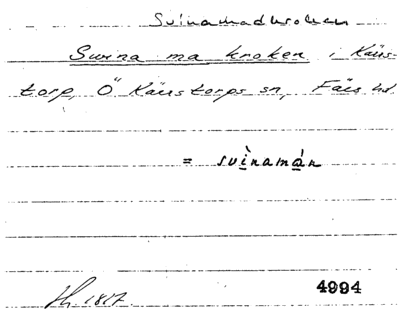 Svinamadkroken
Swina ma kroken i Kärs-
torp, Ö Kärstorps sn, Färs hd
= svìnamán
Sk. 1817.
4994